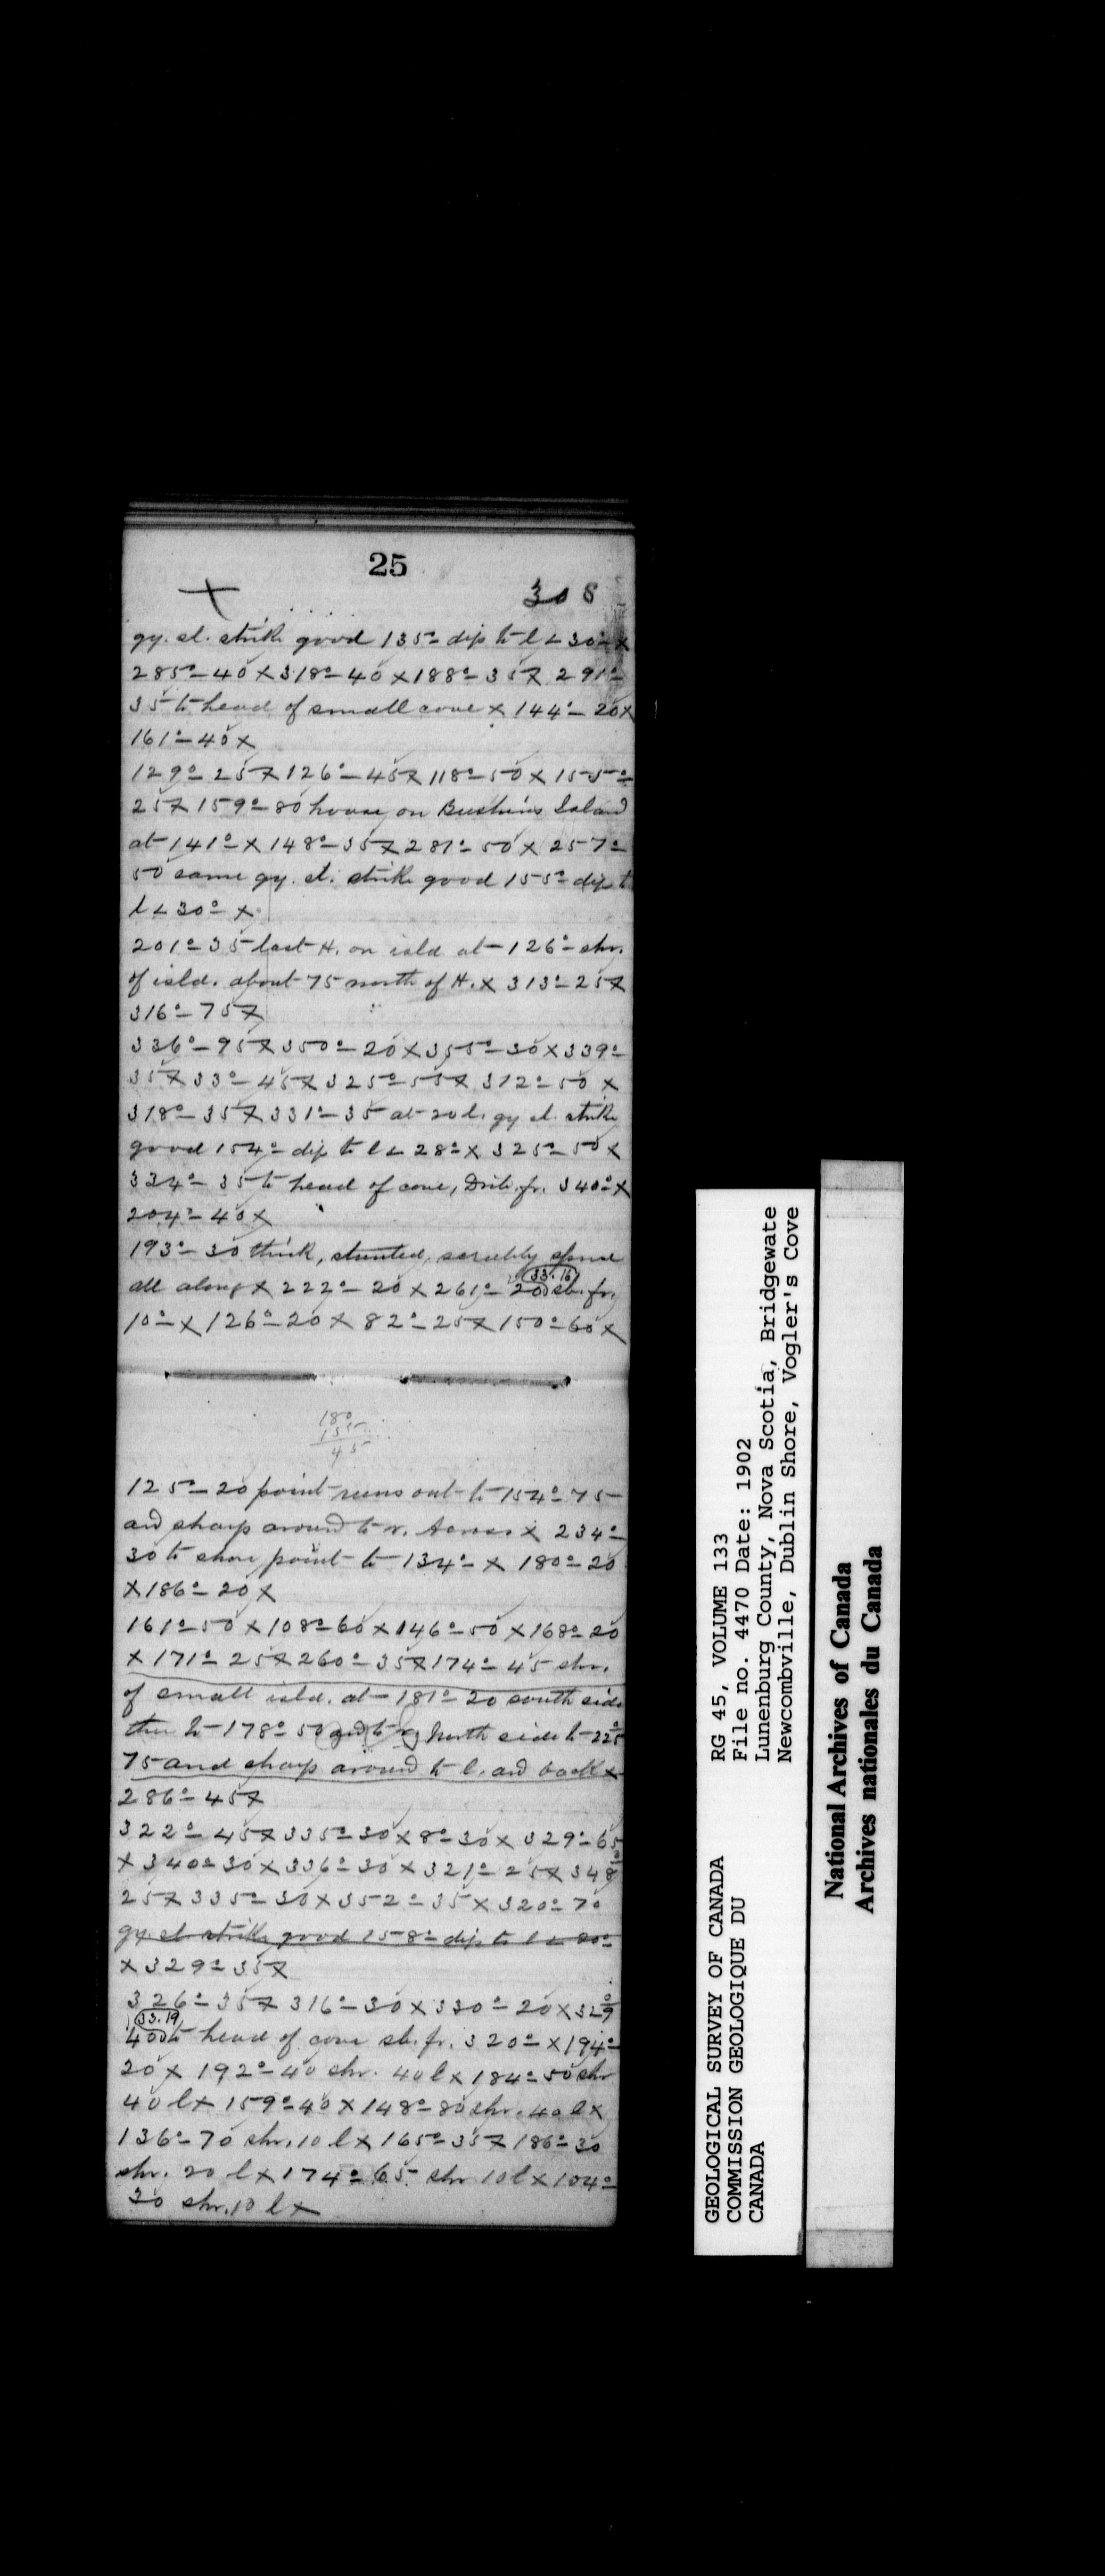 25
308
gy. sl. strike good 135° dip to l ∠ 30° x
285°-40 x 318°-40 x 188°-35 x 291°-
35 to head of small cove x 144°-20 x
161°-40 x
129°-25 x 126°-45 x 118°-50 x 155°-
25 x 159°-80 house on Bushins Island
at 141° x 148°-35 x 281°-50 x 257°-
50 same gy. sl. strike good 155° dip t
l ∠ 30° x
201°-35 last H. on isld at 126° shr.
of isld. about 75 north of H. x 313°-25 x
316°-75 x
336°-95 x 350°-20 x 355°-30 x 339°-
35 x 33°-45 x 325°-55 x 312°-50 x
318°-35 x 331°-35 at 20 l. gy sl. strike
good 154° dip to l ∠ 28° x 325°-50 x
334°-35 to head of cove, fr. 340° x
204°-40 x
193°-30 thick, stunted, scrubby spruce
33.16
all along x 222°-20 x 261°-20 sb. fr.
10° x 126°-20 x 82°-25 x 150°-60 x
180
135
45
125°-20 point runs out to 154°-75
and sharp around to r. Across x 234°-
30 to shore point to 134° x 180°-20
x 186°-20 x
161°-50 x 108°-60 x 146°-50 x 168°-20
x 171°-25 x 260°-35 x 174°-45 shr.
of small isld. at 181°-20 south side
then to 178°-50 and to r, North side to 225°
75 and sharp around to l. and back x
286°-45 x
322°-45 x 335°-30 x 8°-30 x 329°-65
x 340°-30 x 336°-30 x 321°-25 x 348°
25 x 335°-30 x 352°-35 x 320°-70
gy. sl strike good 158° dip to l ∠ 20°
x 329°-35 x
326°-35 x 316°-30 x 330°-20 x 329°
33.19
40 to head of cove sb. fr. 320° x 194°-
20 x 192°-40 shr. 40 l x 184°-50 shr
40 l x 159°-40 x 148°-80 shr. 40 l x
136°-70 shr. 10 l x 165°-35 x 186°-30
shr. 20 l x 174°-65 shr 10 l x 104°-
20 shr. 10 l x
GEOLOGICAL SURVEY OF CANADA
COMMISSION GEOLOGIQUE DU
CANADA
RG 45, VOLUME 133
File no. 4470 Date: 1902
Lunenburg County, Nova Scotia, Bridgewate
Newcombville, Dublin Shore, Vogler's Cove
National Archives of Canada
Archives nationales du Canada